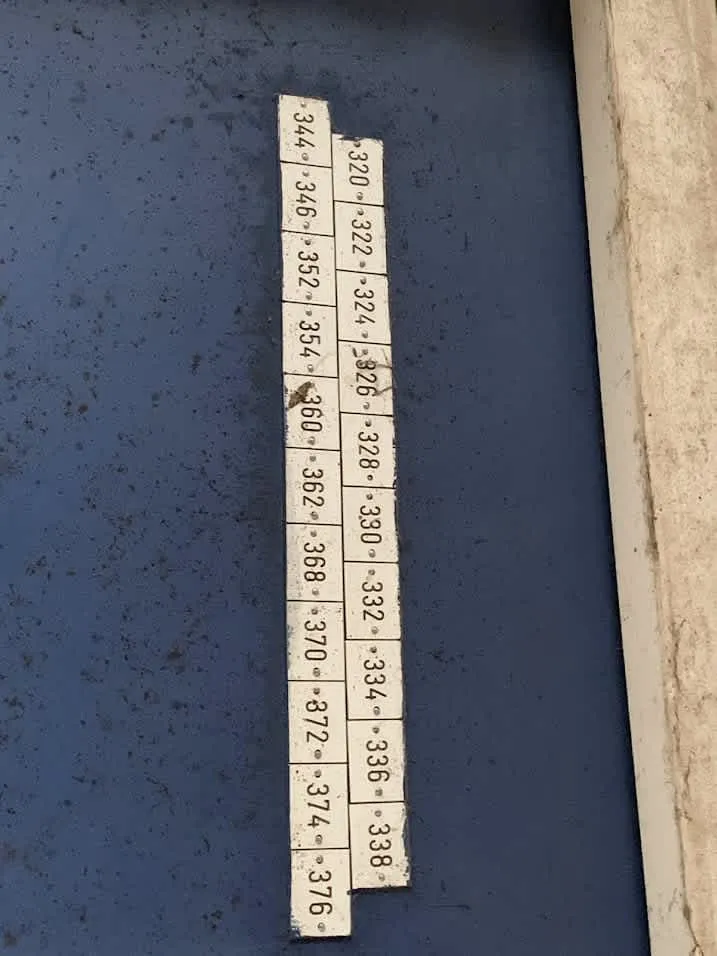 344
346
352
354
360
362
368
370
372
374
376
320
322
324
326
328
330
332
334
336
338